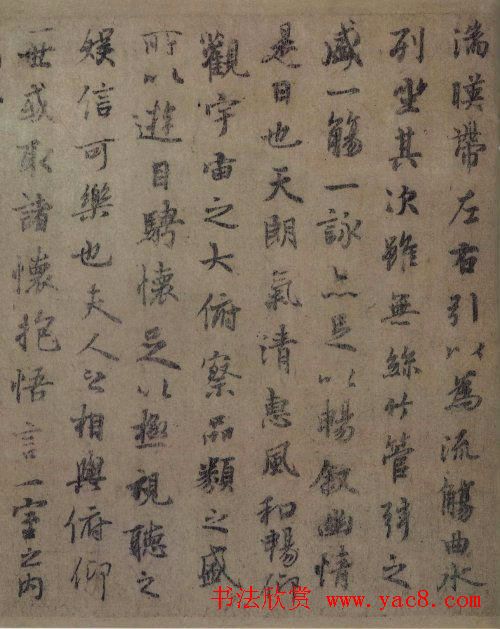 湍暎帶左右引以為流觴曲水
列坐其次雖無絲竹管弦之
盛一觴一詠亦足以暢敘幽情
是日也天朗氣清惠風和暢仰
觀宇宙之大俯察品類之盛
所以遊目騁懷足以極視聽之
娛信可樂也夫人之相與俯仰
一世或取諸懷抱悟言一室之內
书法欣赏：www.yac8.com